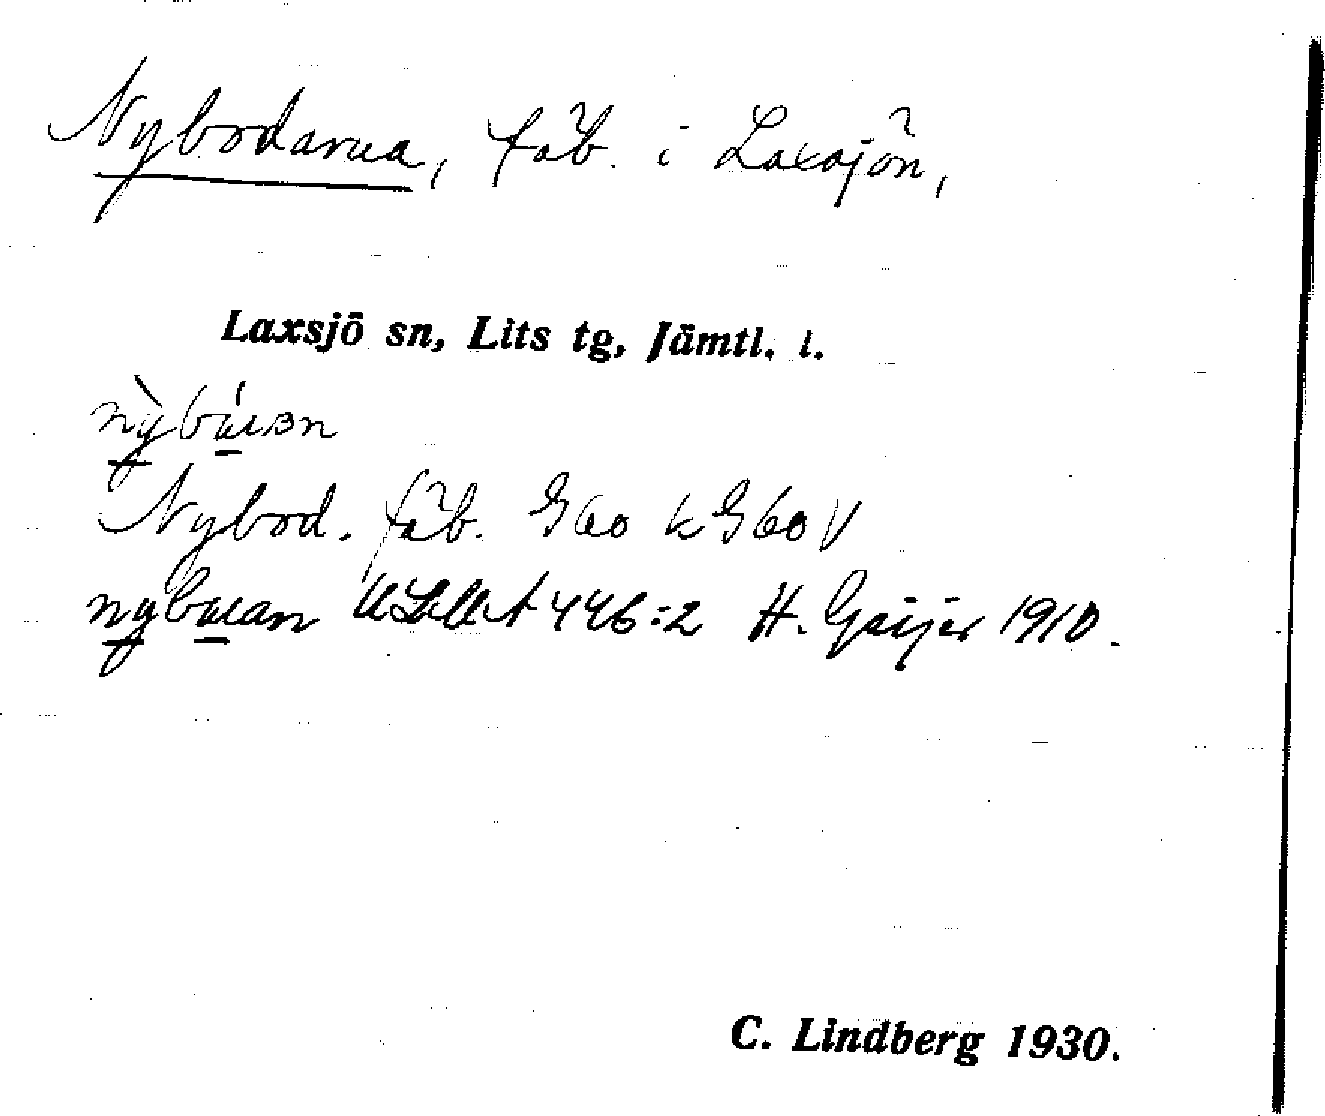 Nybodarna, fäb. i Laxsjön,
Laxsjö sn, Lits tg, Jämtl. l.
Nybod. fäb. G60 k G60 V
ULMA 446:2 H. Geijer 1910.
C. Lindberg 1930.